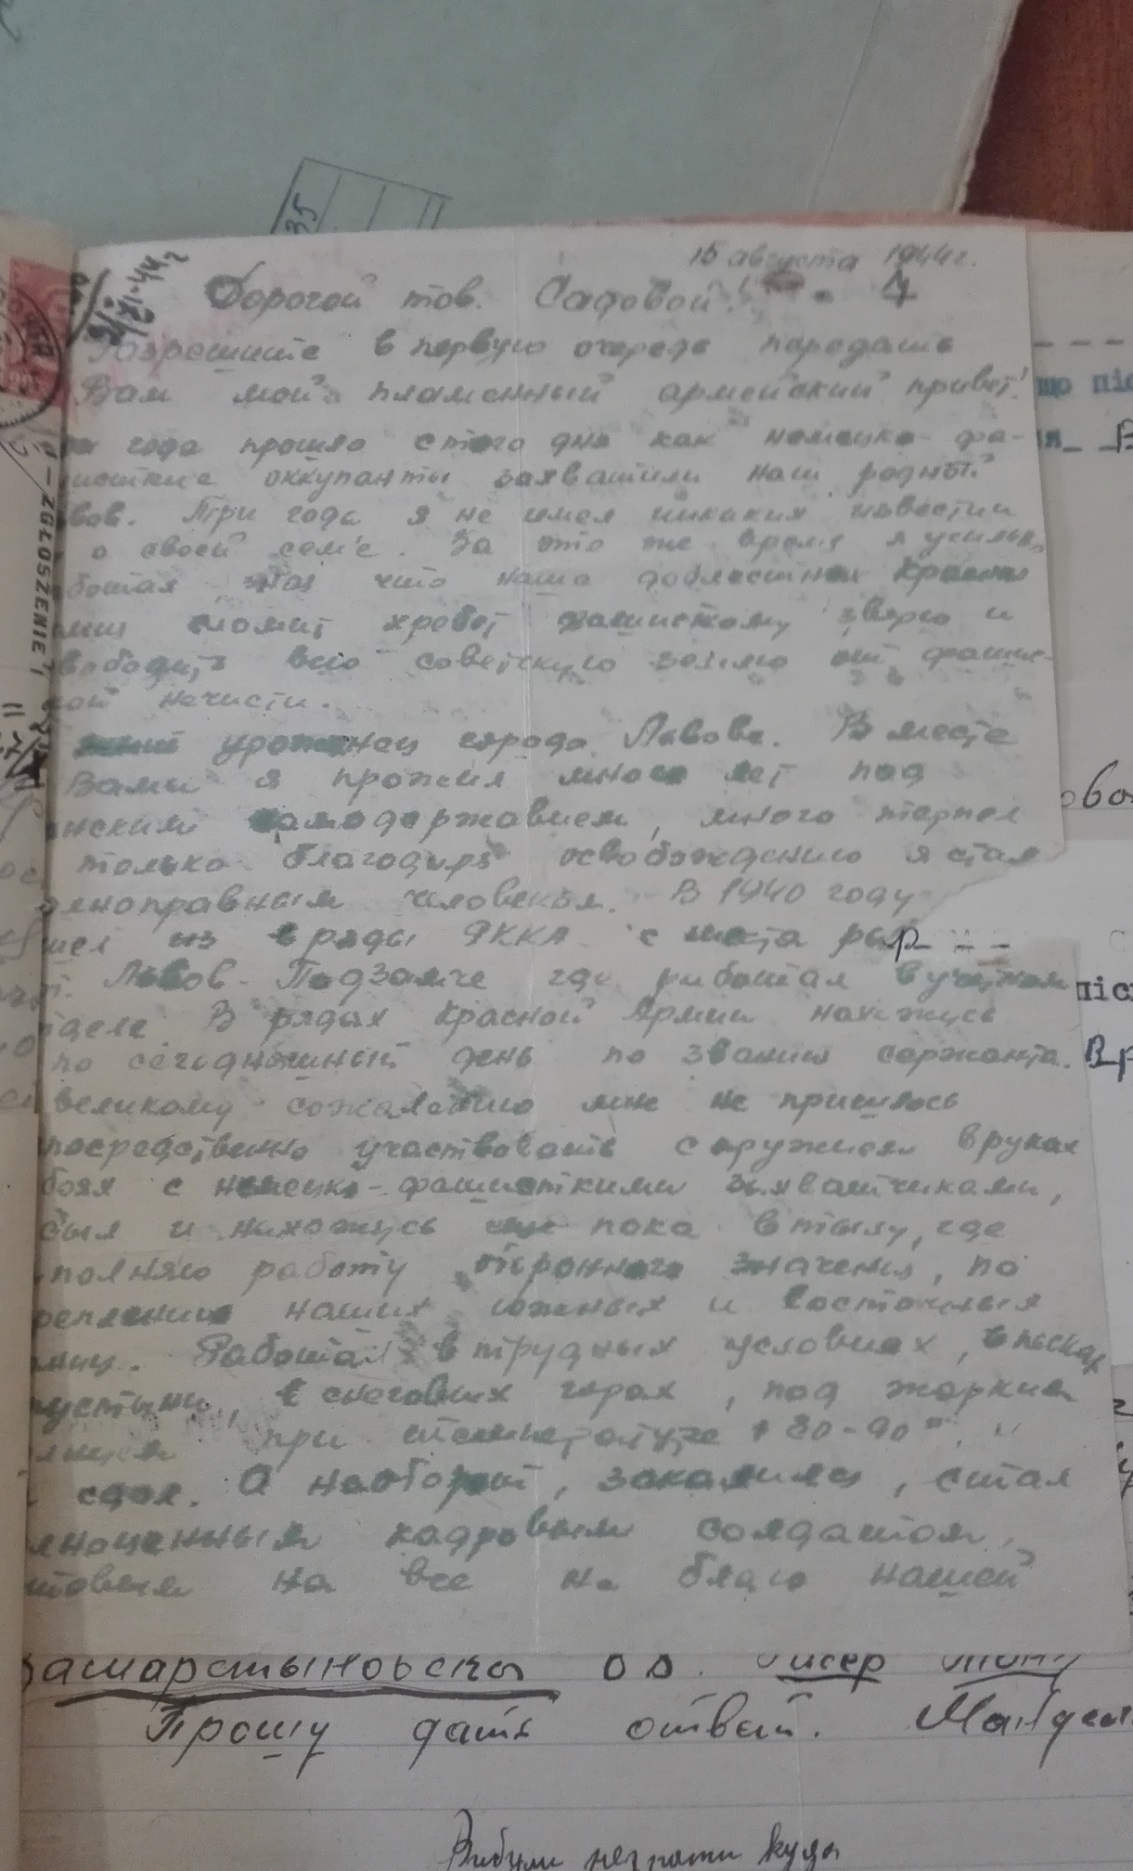 35
15 августа 1944г.
Дорогой тов. Садовой! 4
Разрешите в первую очередь передать
Вам мой пламенный армейский привет!
года прошло с того дня как немецко-фа-
оккупанты захватили наш родной
вов. Три года я не имел никаких известий
о своей сем'е. За это же время я усилен
что наша доблестная Красная
сломит хребет фашисткому зверю и
вободит всю советскую землю от фашис-
кой нечисти.
уроженец города Львова. Вместе
Вами я прожил много лет под
нским самодержавием, много терпел
только благодаря освобождению я стал
лноправным человеком. В 1940 году
шел из в ряды РККА с места ра
Львов-Подзамче где работал в учетном
деле В рядах Красной Армии нахожусь
по сегодняшный день по звании сержанта.
великому сожалению мне не пришлось
посредственно участвовать с оружием в руках
боях с немецко-фашисткими захватчиками,
был и нахожусь пока в тылу, где
полняю работу оборонного значения, по
реплению наших южных и восточных
ниц. Работал в трудных условиях, в песках
пустыни, в снеговых горах, под жарким
лнцем при температуре +80-90°.
сдал. А наоборот, закалился, стал
лноценным кадровым солдатом,
товым на все на благо нашей
Замарстыновска
Прошу дать ответ.
Вибули незнати куда
ZGŁOSZENIE
що піс
ово
піс
Вр